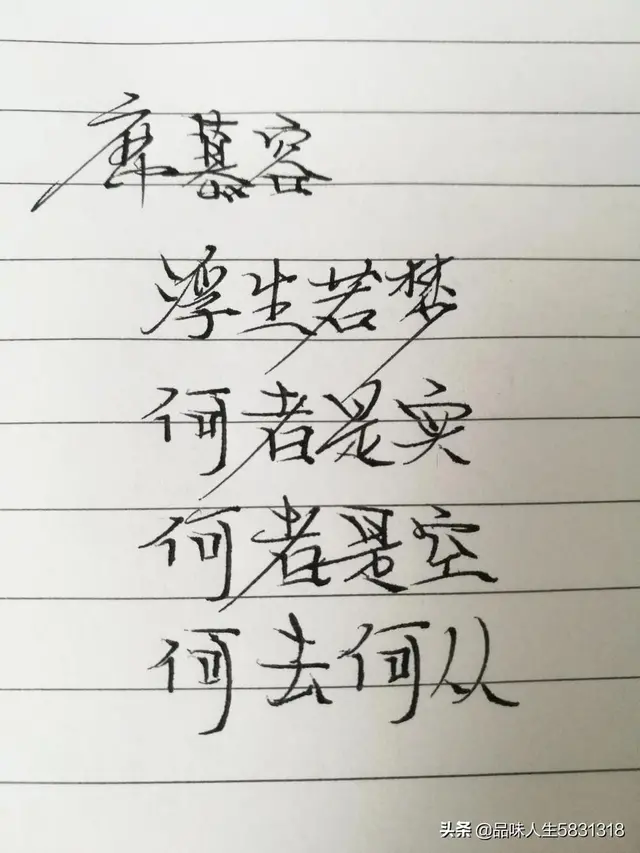 席慕容
浮生若梦
何者是实
何者是空
何去何从
头条 @品味人生5831318